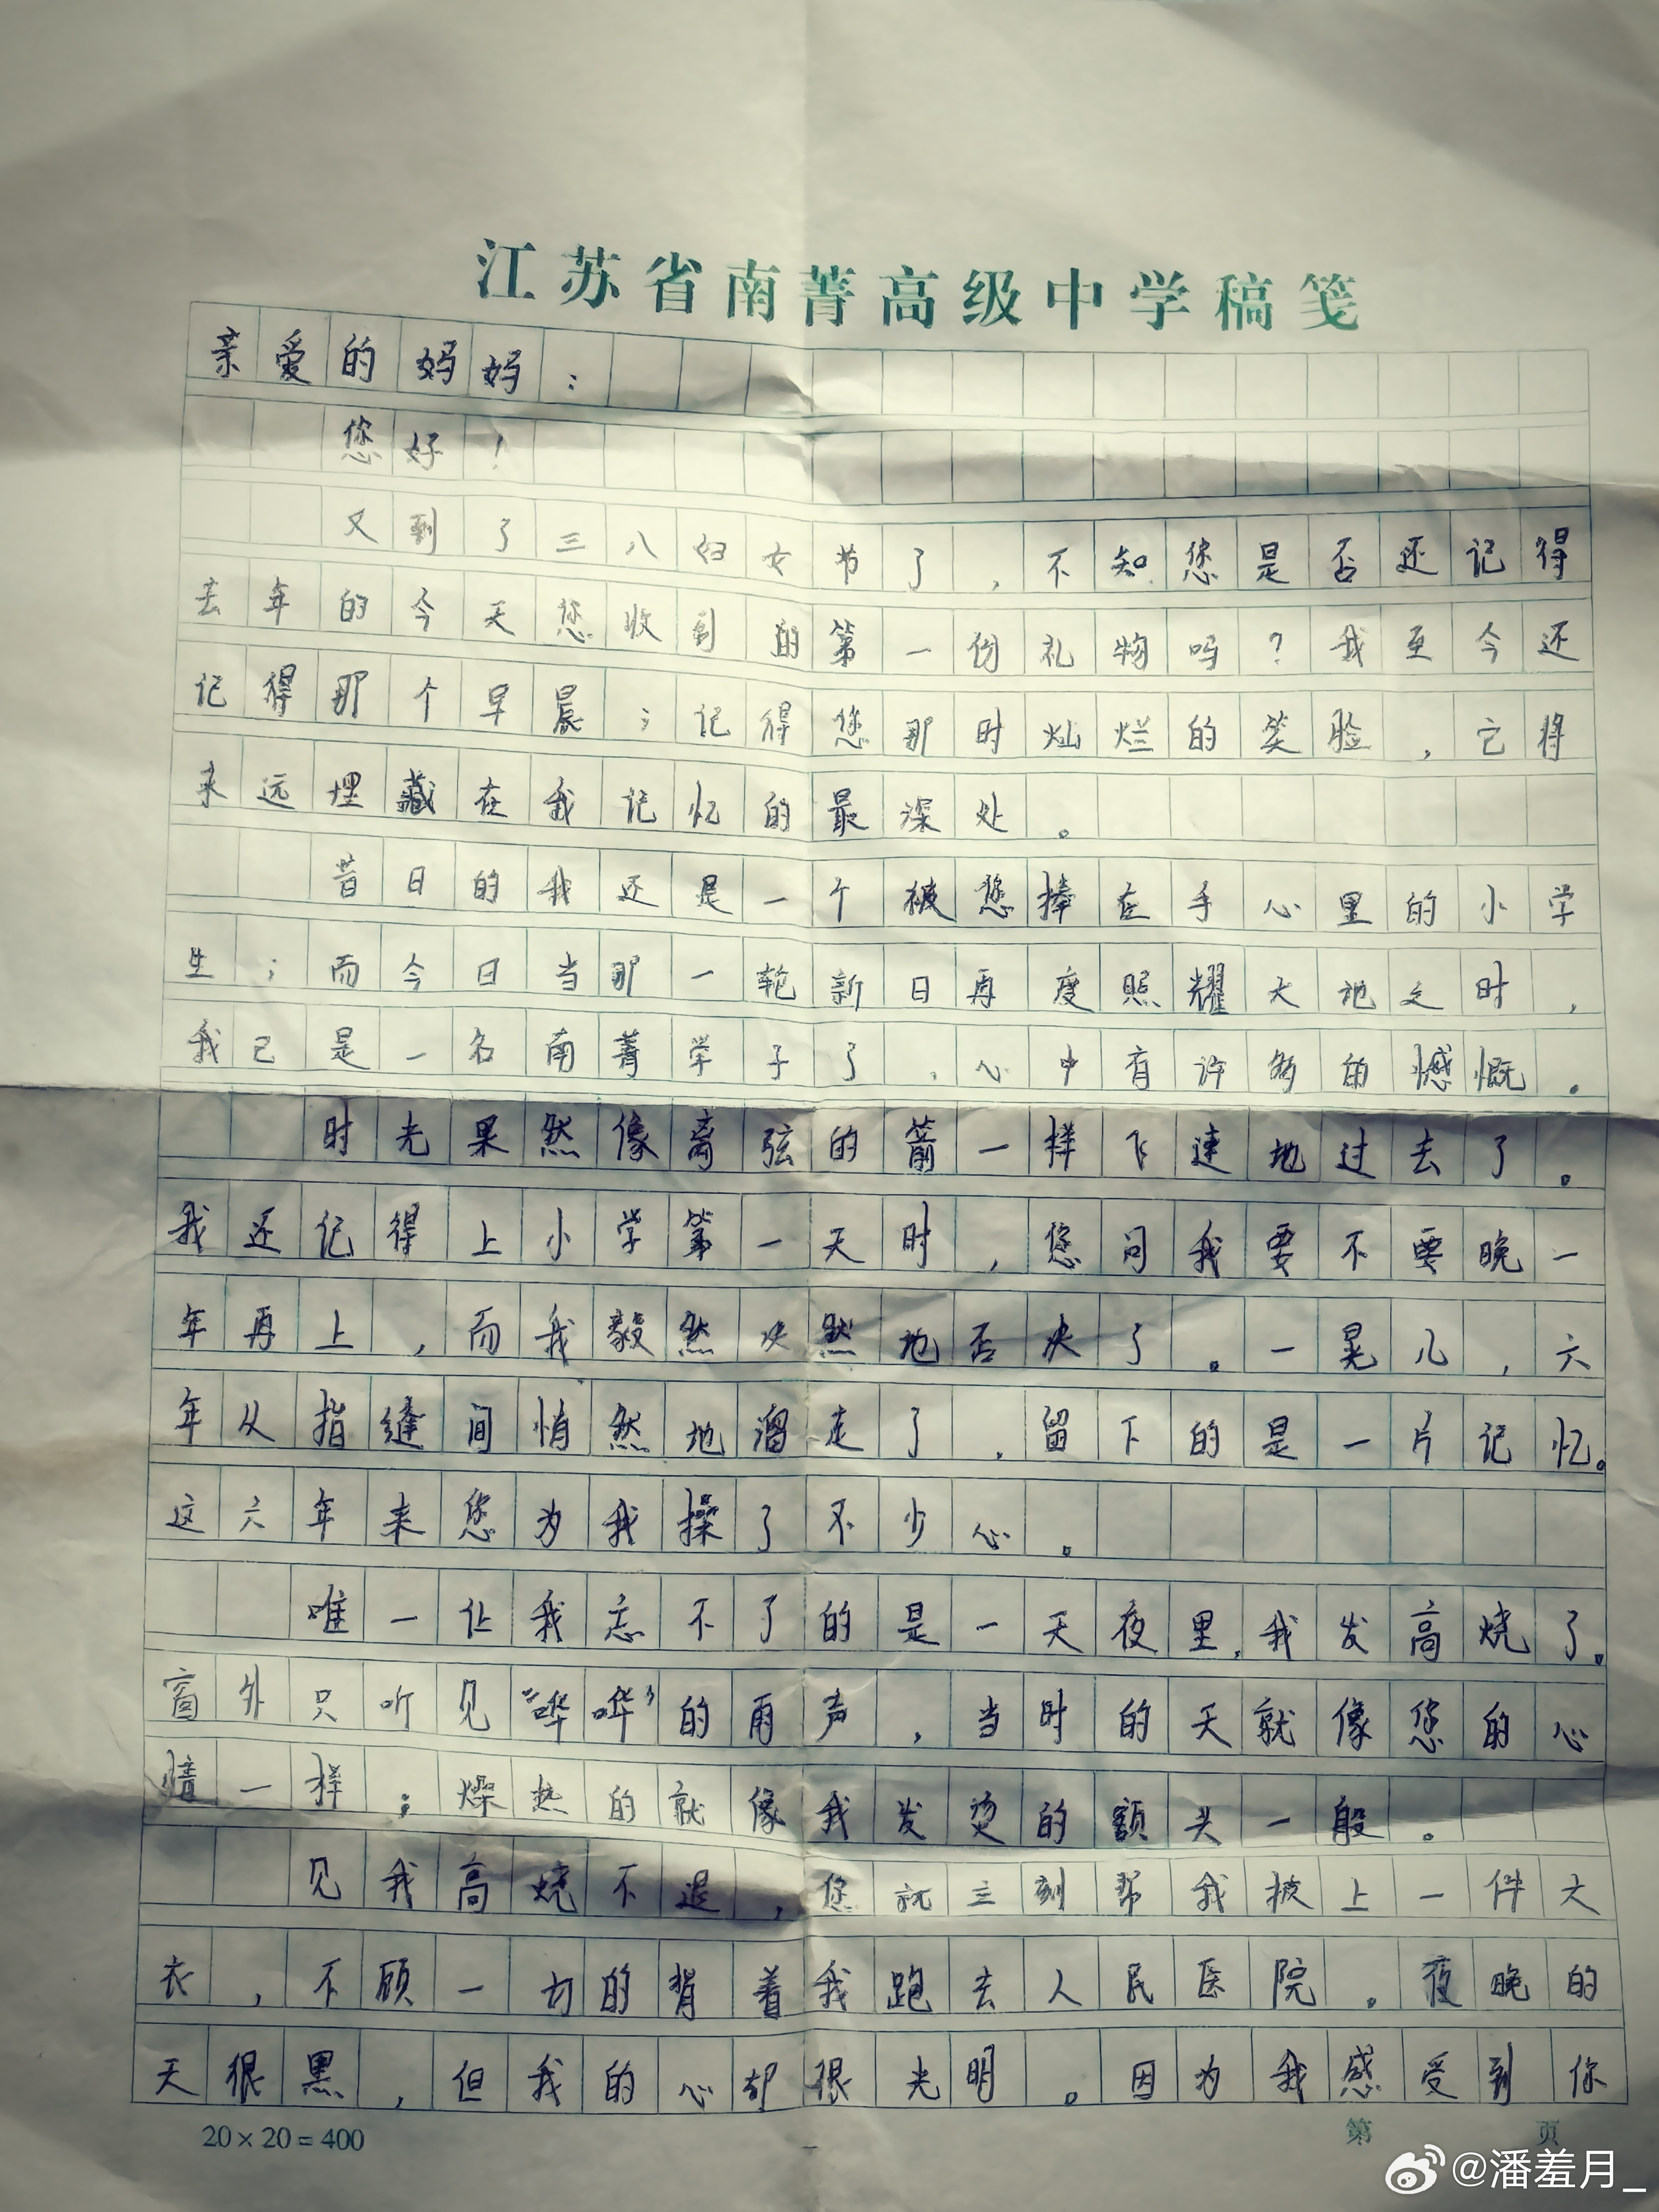 江苏省南菁高级中学稿笺
亲爱的妈妈：
您好！
又到了三八妇女节了，不知您是否还记得
去年的今天您收到的第一份礼物吗？我至今还
记得那个早晨；记得您那时灿烂的笑脸，它将
永远埋藏在我记忆的最深处。
昔日的我还是一个被您捧在手心里的小学
生；而今日当那一轮新日再度照耀大地之时，
我已是一名南菁学子了，心中有许多的憾慨。
时光果然像离弦的箭一样飞速地过去了。
我还记得上小学第一天时，您问我要不要晚一
年再上，而我毅然决然地否决了。一晃儿，六
年从指缝间悄然地溜走了，留下的是一片记忆。
这六年来您为我操了不少心。
唯一让我忘不了的是一天夜里，我发高烧了。
窗外只听见“哗哗”的雨声，当时的天就像您的心
情一样；燥热的就像我发烫的额头一般。
见我高烧不退，您就立刻帮我披上一件大
衣，不顾一切的背着我跑去人民医院。夜晚的
天很黑，但我的心却很光明。因为我感受到你
20×20=400
第 页
@潘羞月_